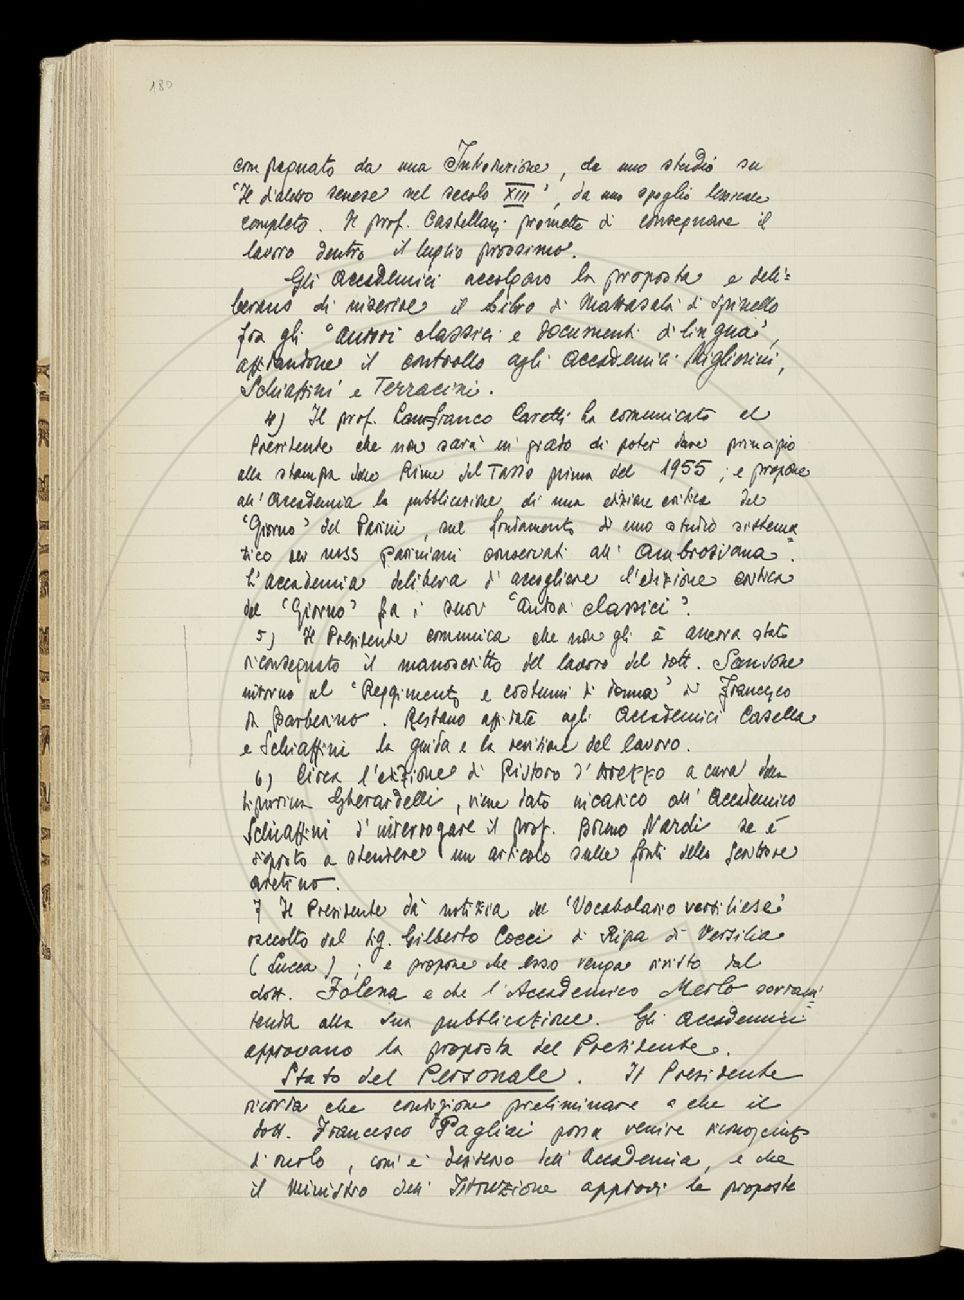 180
compagnato da una Introduzione, da uno studio su
"Il dialetto senese nel secolo XIII", da uno spoglio lessicale
completo. Il prof. Castellani promette di consegnare il
lavoro dentro il luglio prossimo.
Gli Accademici accolgono la proposta e deli=
berano di inserire il Libro di Mattasalà di Spinello
fra gli "Autori classici e documenti di lingua",
affidandone il controllo agli Accademici Migliorini,
Schiaffini e Terracini.
4) Il prof. Lanfranco Caretti ha comunicato al
Presidente che non sarà in grado di poter dare principio
alla stampa delle Rime del Tasso prima del 1955; e propone
all'Accademia la pubblicazione di una edizione critica del
"Giorno" del Parini, sul fondamento di uno studio sistema=
tico dei mss pariniani conservati all'Ambrosiana.
L'Accademia delibera d'accogliere l'edizione critica
del "Giorno" fra i suoi "Autori classici".
5) Il Presidente comunica che non gli è ancora stato
riconsegnato il manoscritto del lavoro del dott. Sansone
intorno al "Reggimento e costumi di donna" di Francesco
da Barberino. Restano affidate agli Accademici Casella
e Schiaffini la guida e la revisione del lavoro.
6) Circa l'edizione di Ristoro d'Arezzo a cura della
Gherardelli, viene dato incarico all'Accademico
Schiaffini d'interrogare il prof. Bruno Nardi se è
disposto a stendere un articolo sulle fonti dello Scrittore
aretino.
7) Il Presidente dà notizia del "Vocabolario versiliese"
raccolto dal sig. Gilberto Cocci di Ripa di Versilia
(Lucca); e propone che esso venga rivisto dal
dott. Folena e che l'Accademico Merlo sovrain=
tenda alla sua pubblicazione. Gli Accademici
approvano la proposta del Presidente.
Stato del Personale. Il Presidente
ricorda che condizione preliminare a che il
dott. Francesco Pagliai possa venire riconosciuto
di ruolo, com'è desiderio dell'Accademia, e che
il Ministro dell'Istruzione approvi le proposte